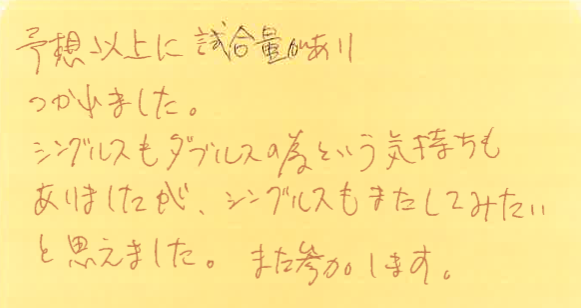 予想以上に試合量があり
つかれました。
シングルスもダブルスの為という気持ちも
ありましたが、シングルスもまたしてみたい
と思えました。また参加します。